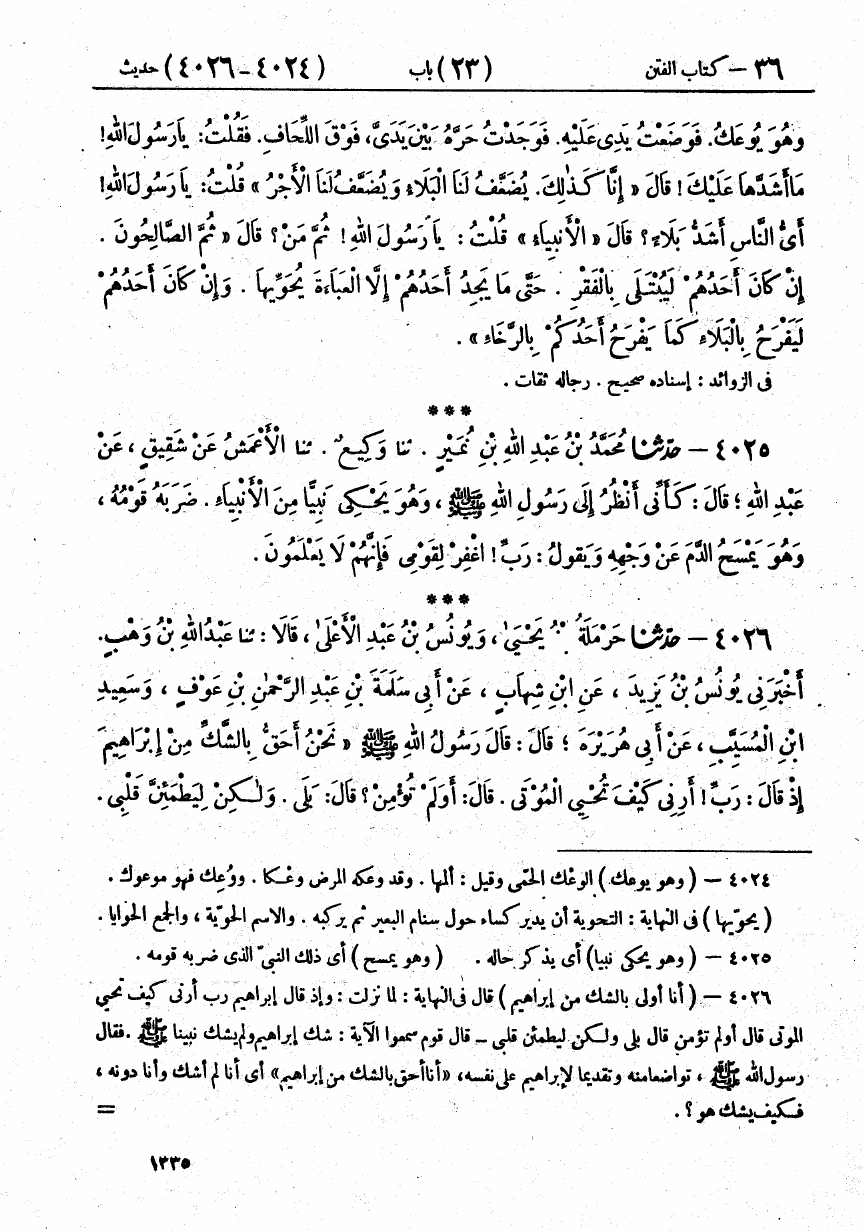 ٣٦ – كتاب الفتن (٢٣) باب (٤٠٢٤ – ٤٠٢٦) حديث
وَهُوَ يُوعَكُ. فَوَضَعْتُ يَدِى عَلَيْهِ. فَوَجَدْتُ حَرَّهُ بَيْنَ يَدَىَّ، فَوْقَ اللِّحَافِ. فَقُلْتُ: يَا رَسُولَ اللهِ!
مَا أَشَدَّهَا عَلَيْكَ! قَالَ « إِنَّا كَذٰلِكَ. يُضَعَّفُ لَنَا الْبَلَاءِ وَيُضَعَّفُ لَنَا الْأَجْرُ » قُلْتُ: يَا رَسُولَ اللهِ!
أَىُّ النَّاسِ أَشَدُّ بَلَاءً؟ قَالَ « الْأَنْبِيَاءِ » قُلْتُ: يَا رَسُولَ اللهِ! ثُمَّ مَنْ؟ قَالَ « ثُمَّ الصَّالِحُونَ .
إِنْ كَانَ أَحَدُهُمْ لَيُبْتَلَى بِالْفَقْرِ . حَتَّى مَا يَجِدُ أَحَدُهُمْ إِلَّا الْعَبَاءَةَ يُحَوِّيهَا . وَإِنْ كَانَ أَحَدُهُمْ
لَيَفْرَحُ بِالْبَلَاءِ كَمَا يَفْرَحُ أَحَدُكُمْ بِالرَّخَاءِ » .
فى الزوائد : إسناده صحيح . رجاله ثقات .
***
٤٠٢٥ – حدّثنا مُحَمَّدُ بْنُ عَبْدِ اللهِ بْنِ نُمَيْرٍ . ثنا وَكِيعٌ . ثنا الْأَعْمَشُ عَنْ شَقِيقٍ ، عَنْ
عَبْدِ اللهِ ؛ قَالَ : كَأَنِّى أَنْظُرُ إِلَى رَسُولِ اللهِ ﷺ ، وَهُوَ يَحْكِى نَبِيًّا مِنَ الْأَنْبِيَاءِ . ضَرَبَهُ قَوْمُهُ ،
وَهُوَ يَمْسَحُ الدَّمَ عَنْ وَجْهِهِ وَيَقُولُ : رَبِّ ! اغْفِرْ لِقَوْمِى فَإِنَّهُمْ لَا يَعْلَمُونَ .
***
٤٠٢٦ – حدّثنا حَرْمَلَةُ بْنُ يَحْيَىٰ ، وَيُونُسُ بْنُ عَبْدِ الْأَعْلَىٰ ، قَالَا : ثنا عَبْدُ اللهِ بْنُ وَهْبٍ.
أَخْبَرَنِى يُونُسُ بْنُ يَزِيدَ ، عَنِ ابْنِ شِهَابٍ ، عَنْ أَبِى سَلَمَةَ بْنِ عَبْدِ الرَّحْمٰنِ بْنِ عَوْفٍ ، وَسَعِيدِ
ابْنِ الْمُسَيَّبِ ، عَنْ أَبِى هُرَيْرَةَ ؛ قَالَ : قَالَ رَسُولُ اللهِ ﷺ « نَحْنُ أَحَقُّ بِالشَّكِّ مِنْ إِبْرَاهِيمَ
إِذْ قَالَ : رَبِّ ! أَرِنِى كَيْفَ تُحْيِي الْمَوْتَى . قَالَ: أَوَلَمْ تُؤْمِنْ؟ قَالَ: بَلَى . وَلٰكِنْ لِيَطْمَئِنَّ قَلْبِى .
٤٠٢٤ – ( وهو يوعك ) الوعْك الحمّى وقيل : ألمها . وقد وعكه المرض وعْكا . ووُعِك فهو موعوك .
( يحوّيها ) فى النهاية : التحوية أن يدير كساء حول سنام البعير ثم يركبه . والاسم الحويّة ، والجمع الحوايا .
٤٠٢٥ – ( وهو يحكى نبيا) أى يذكر حاله . ( وهو يمسح ) أى ذلك النبىّ الذى ضربه قومه .
٤٠٢٦ – ( أنا أولى بالشك من إبراهيم ) قال فى النهاية : لما نزلت : وإذ قال إبراهيم رب أرنى كيف تحيي
الموتى قال أولم تؤمن قال بلى ولكن ليطمئن قلبى – قال قوم سمعوا الآية : شك إبراهيم ولم يشك نبينا ﷺ . فقال
رسول الله ﷺ ، تواضعا منه وتقديما لإبراهيم على نفسه، «أنا أحق بالشك من إبراهيم» أى أنا لم أشك وأنا دونه ،
فكيف يشك هو ؟ . =
١٣٣٥